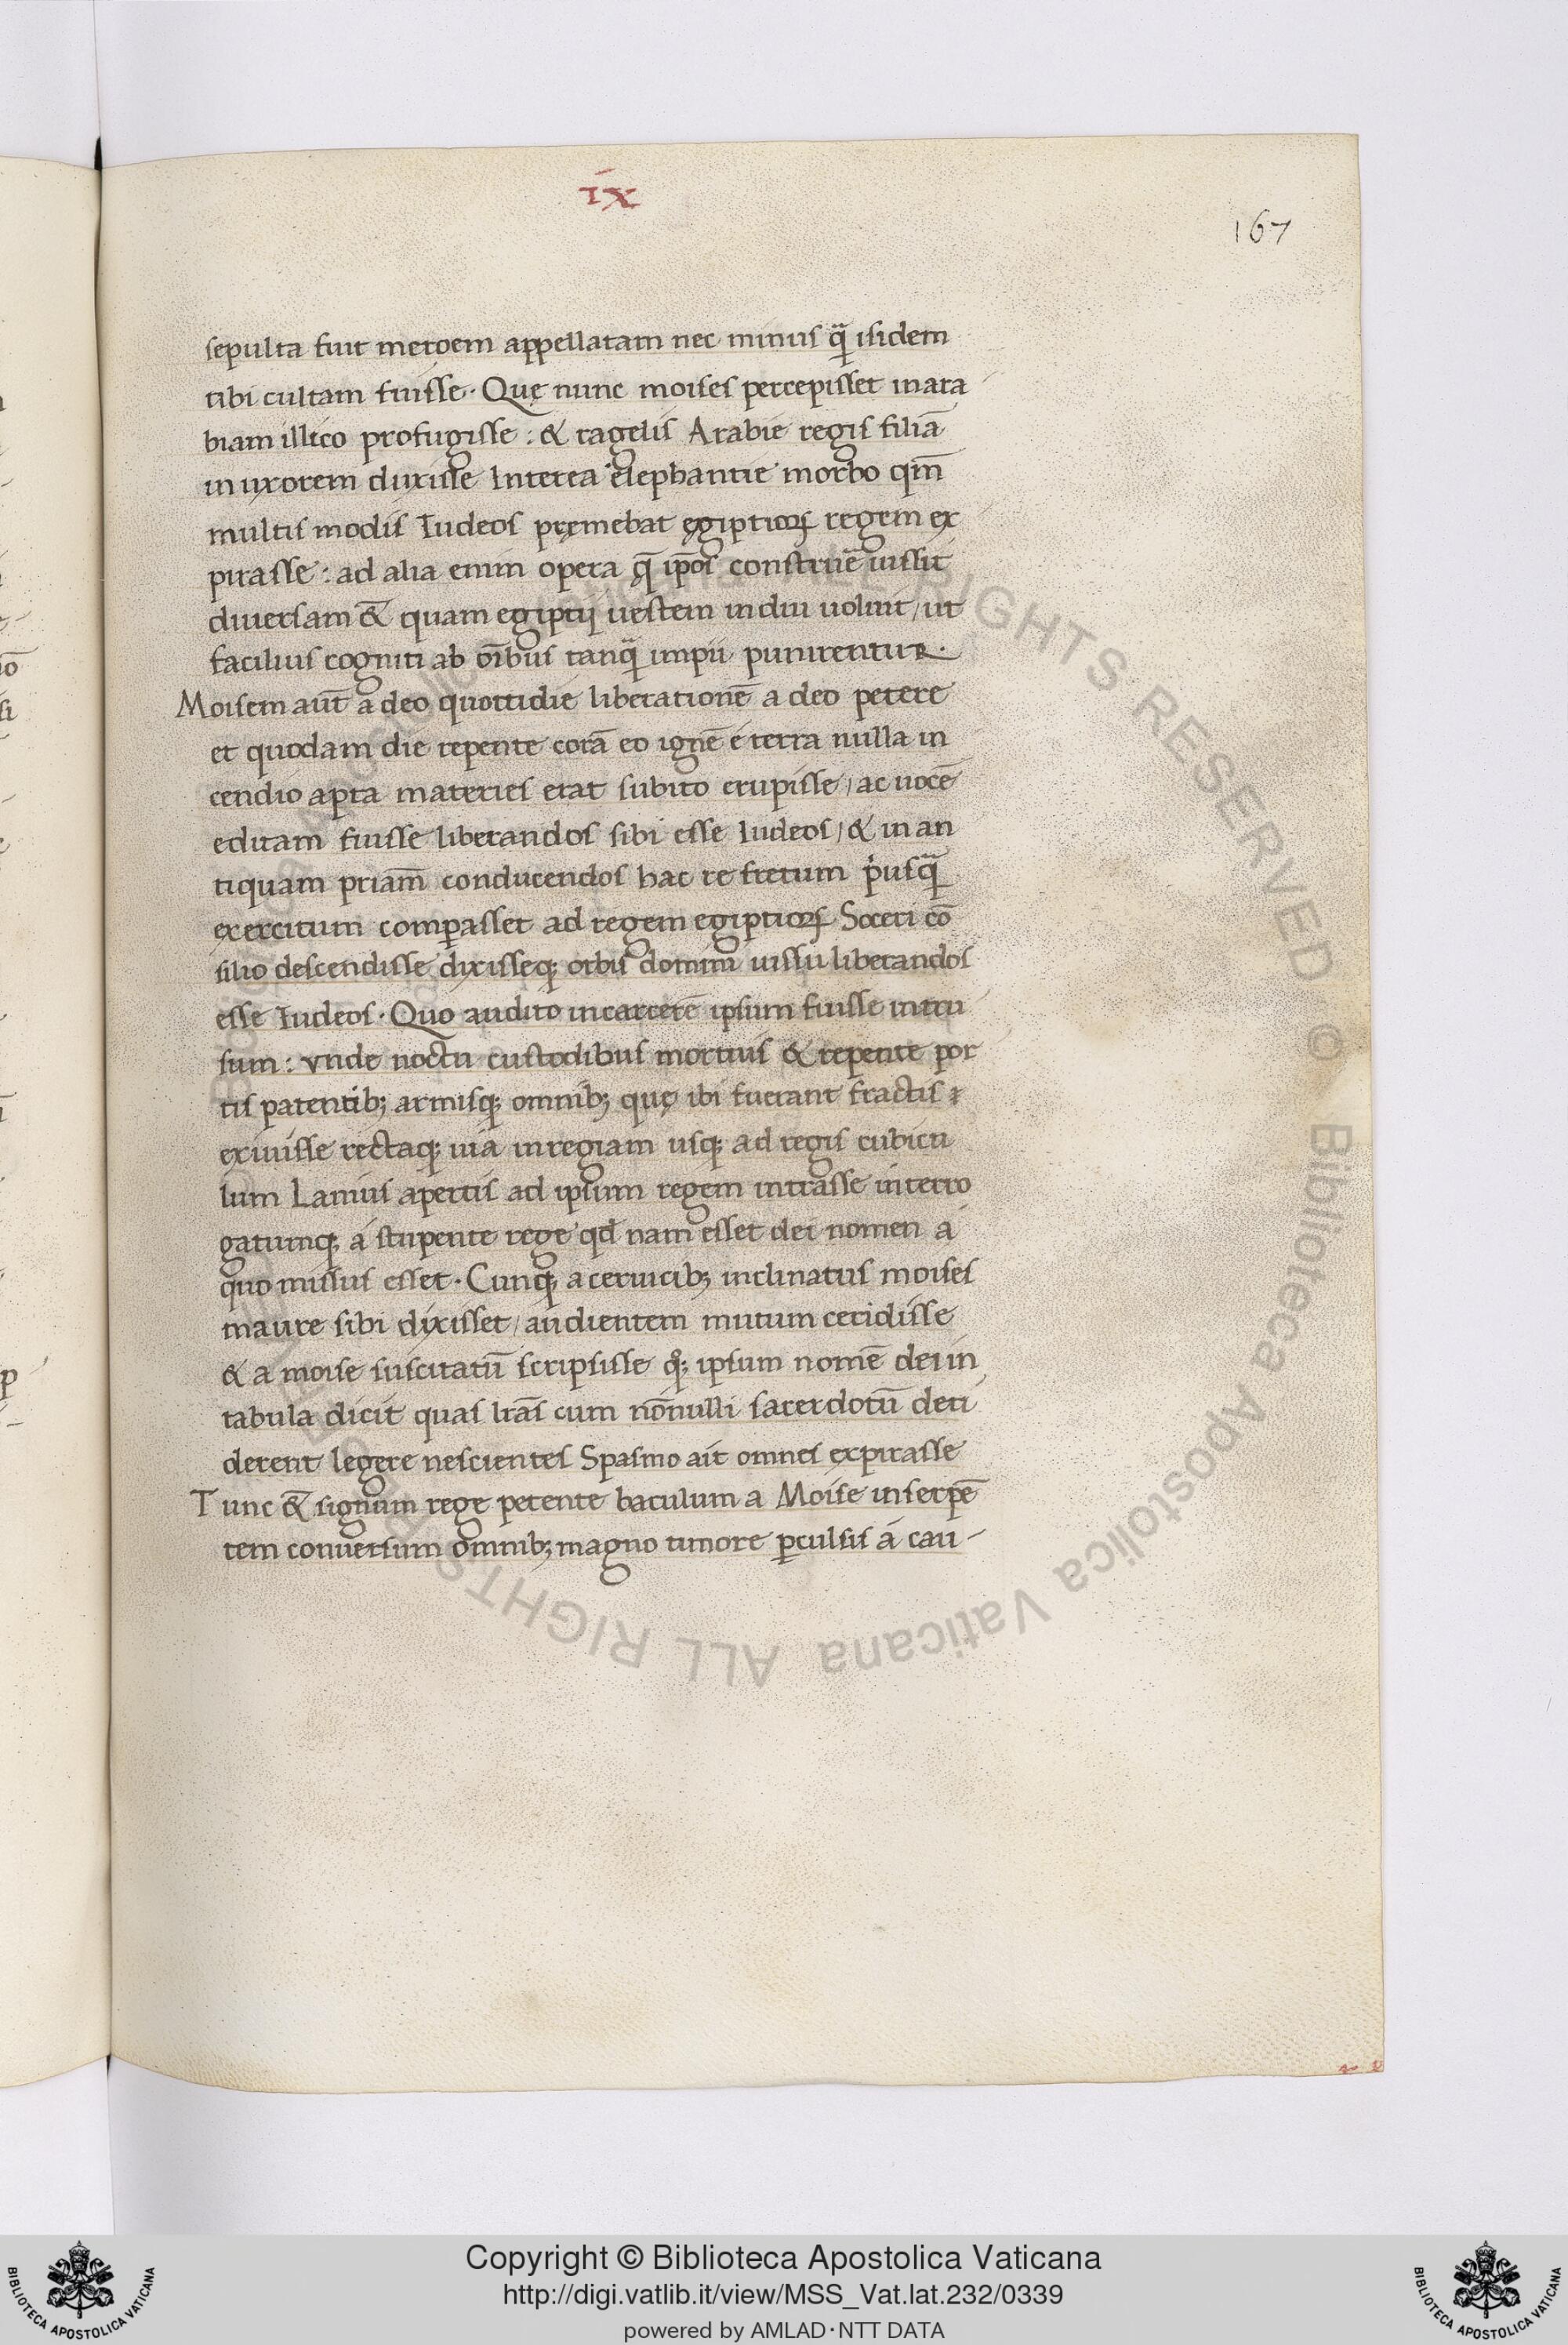 ix
167
sepulta fuit meroem appellatam nec minus q̃ isidem
tibi cultam fuisse. Quę nunc moises percepisset in ara
biam illico profugisse: & ragelis Arabie regis filiã
in uxorem duxisse Interea elephantie morbo qm̃
multis modis Iudeos pręmebat ęgiptioꝝ regem ex
pirasse: ad alia enim opera q̃ ip̃os construẽ iussit
diuersam &̃ quam egiptij uestem indui uoluit, ut
facilius cogniti ab oĩbus tanq̃ impii punirentur.
Moisem aũt a deo quottidie liberationẽ a deo petere
et quodam die repente corã eo ignẽ é terra nulla in
cendio apta materies erat subito erupisse, ac uocẽ
editam fuisse liberandos sibi esse Iudeos, & in an
tiquam priam̃ conducendos hac re fretum p̓usq̃
exercitum comꝑasset ad regem egiptioꝝ Soceri cõ
silio descendisse dixisseq; orbis domini iussu liberandos
esse Iudeos. Quo audito in carcerẽ ipsum fuisse intru
sum: vnde noctu custodibus mortuis & repente por
tis patentib; armisq; omnib; quę ibi fuerant fractis
exiuisse rectaq; uia in regiam usq; ad regis cubicu
lum Lanius apertis ad ipsum regem intrasse interro
gatumq; á stupente rege qd̃ nam esset dei nomen á
quo missus esset. Cunq; a ceruicib; inclinatus moises
in aure sibi dixisset, audientem mutum cecidisse
& a moise suscitatũ scripsisse q̊; ipsum nomẽ dei in
tabula dicit quas lr̃as cum nõnulli sacerdotũ deri
derent legere nescientes Spasmo ait omnes expirasse
Tunc &̃ signum rege petente baculum a Moise in serpẽ
tem conuersum omnib; magno timore ꝑculsis á cau-
Copyright © Biblioteca Apostolica Vaticana
http://digi.vatlib.it/view/MSS_Vat.lat.232/0339
powered by AMLAD·NTT DATA
BIBLIOTECA APOSTOLICA VATICANA
BIBLIOTECA APOSTOLICA VATICANA
Biblioteca Apostolica Vaticana ALL RIGHTS RESERVED © Biblioteca Apostolica Vaticana ALL RIGHTS